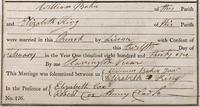 William Bahn of this Parish
and Elizabeth King of this Parish
were married in this Church by Licence with Consent of
this Twelfth Day of
February in the Year One thousand eight hundred and thirty one
By me
This Marriage was solemnized between us { William Bahn
Elizabeth King
In the Presence of { Elizabeth
Henry
No. 426.